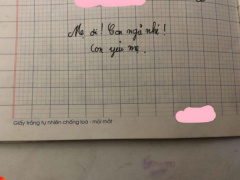 Mẹ ơi! Con ngủ nhé!
Con yêu mẹ.
Giấy trắng tự nhiên chống loá - mỏi mắt